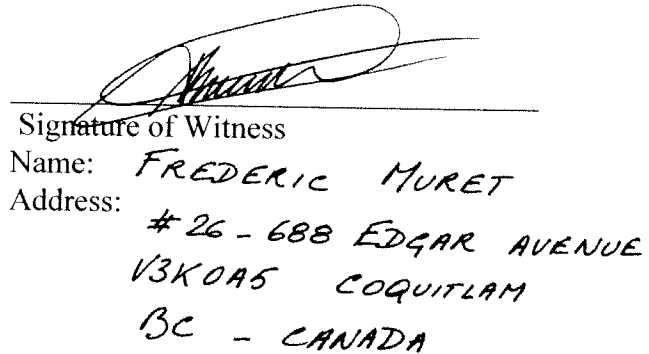 Signature of Witness
Name: FREDERIC MURET
Address:
#26 - 688 EDGAR AVENUE
V3K0A5 COQUITLAM
BC - CANADA